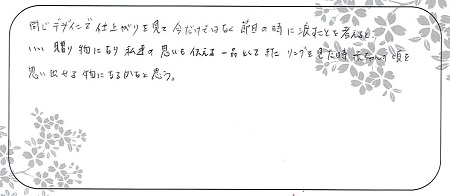 同じデザインで仕上がりを見て今だけではなく節目の時に渡すことを考えると、
いい贈り物になり私達の思いも伝える一品として またリングを見た時 赤ちゃんの頃を
思い出せる物になるかなと思う。